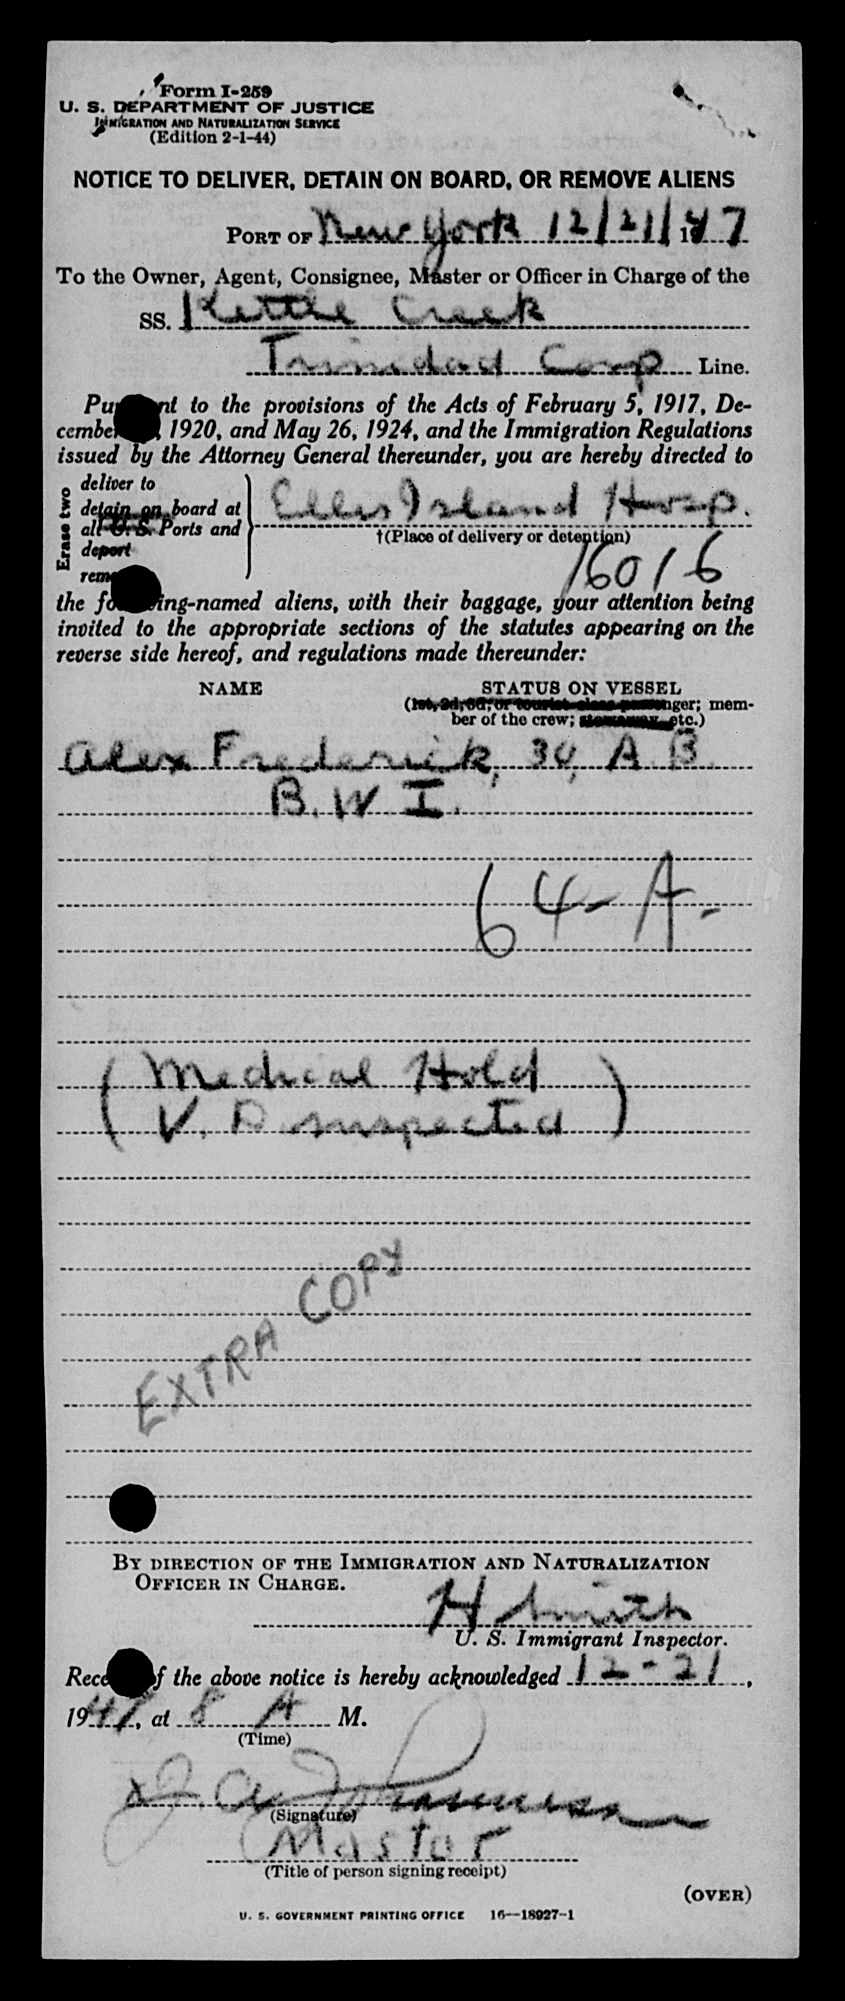 Form I-259
U. S. DEPARTMENT OF JUSTICE
IMMIGRATION AND NATURALIZATION SERVICE
(Edition 2-1-44)
NOTICE TO DELIVER, DETAIN ON BOARD, OR REMOVE ALIENS
PORT OF New York 12/21/1947
To the Owner, Agent, Consignee, Master or Officer in Charge of the
SS. Kettle Creek
Trinidad Corp Line.
Pursuant to the provisions of the Acts of February 5, 1917, De-
cember , 1920, and May 26, 1924, and the Immigration Regulations
issued by the Attorney General thereunder, you are hereby directed to
Erase two
deliver to
detain on board at
all U. S. Ports and
deport
remove
Ellis Island Hosp.
†(Place of delivery or detention)
16016
the following-named aliens, with their baggage, your attention being
invited to the appropriate sections of the statutes appearing on the
reverse side hereof, and regulations made thereunder:
NAME STATUS ON VESSEL
(1st, 2d, 3d, or tourist class passenger; mem-
ber of the crew; stowaway, etc.)
Alex Frederick, 34, A B
B. W I.
64-A-
(Medical Hold
V. D suspected)
EXTRA COPY
BY DIRECTION OF THE IMMIGRATION AND NATURALIZATION
OFFICER IN CHARGE.
H Smith
U. S. Immigrant Inspector.
Receipt of the above notice is hereby acknowledged 12-21,
1947, at 8 A M.
(Time)
x J. A.
(Signature)
Master
(Title of person signing receipt)
(OVER)
U. S. GOVERNMENT PRINTING OFFICE 16—18927-1